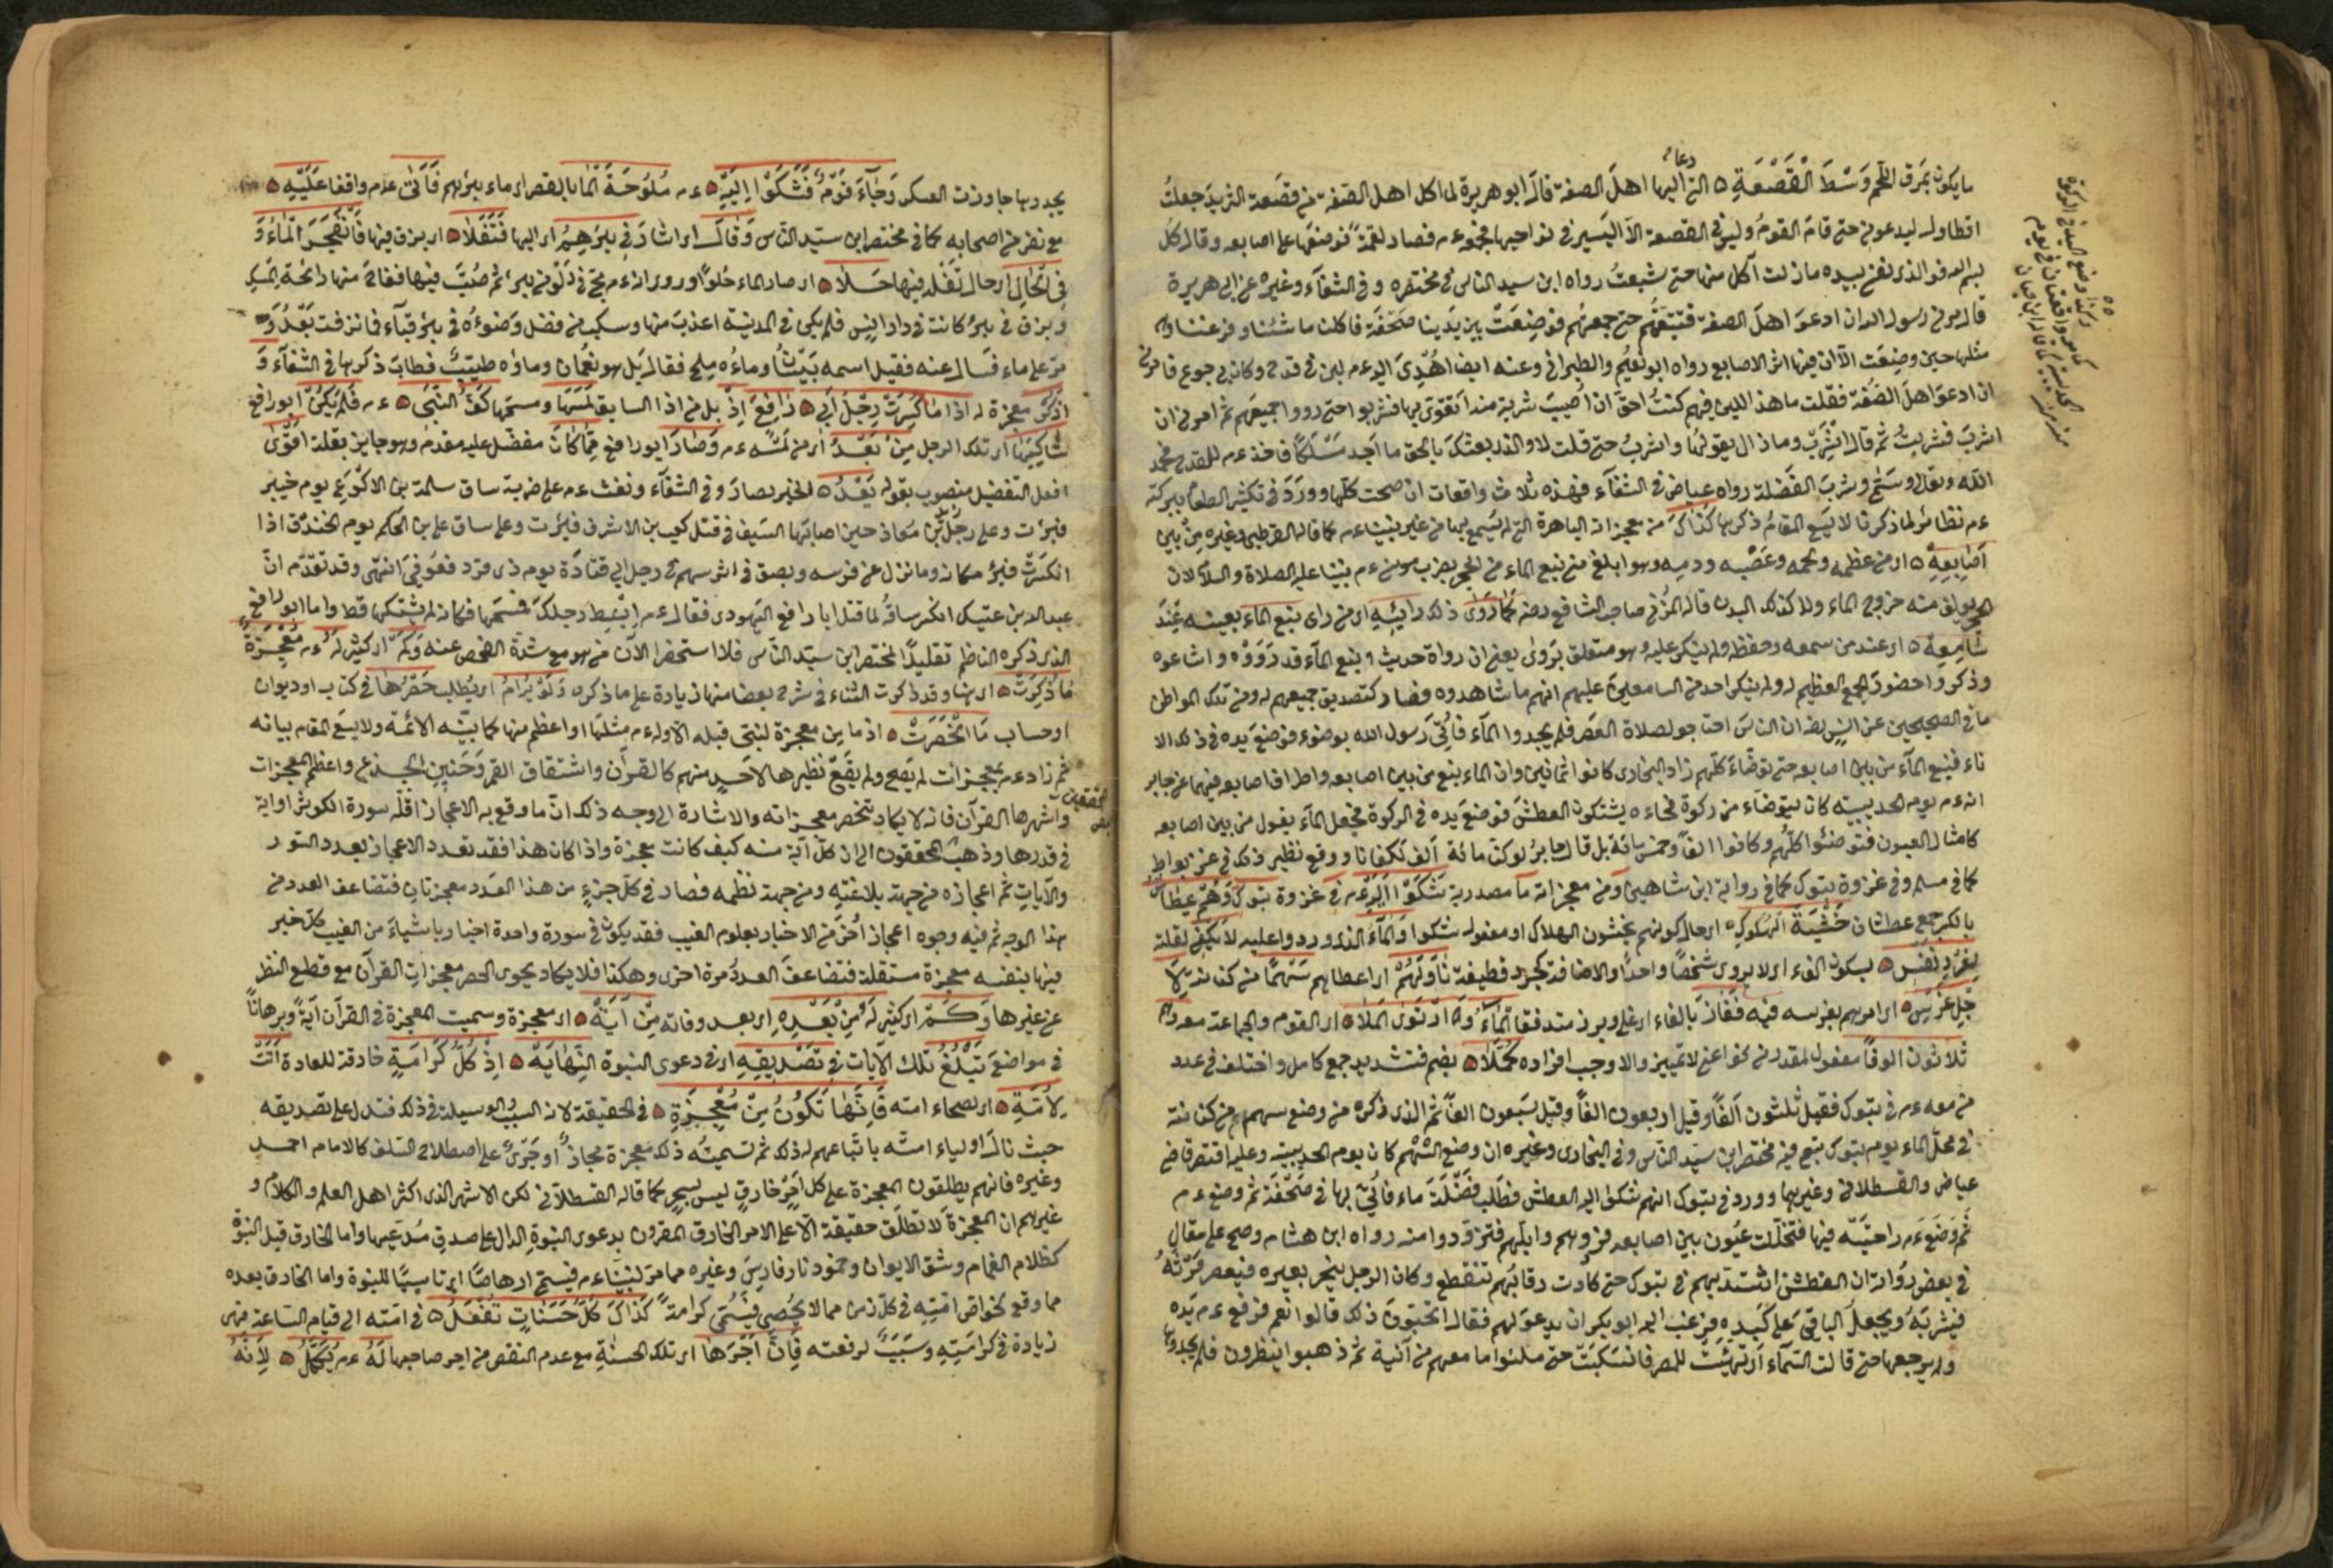 ما يكون بمرق اللحم وَسْطَ الْقَصْعَةِ ٥ التي اليها اهلَ الصفة قالَ ابو هريرة لما اكل اهل الصفة من قصعة الثريد جعلتُ
دعا
اتطاول ليدعوني حتى قامَ القومُ وليس في القصعة الا اليَسير في نواحيها فجمعه م فصار لقمةً فوضعها على اصابعه وقال كل
بسم الله فو الذي نفسي بيده ما زلت آكل منها حتى شبعتُ رواه ابن سيد الناس في مختصره وفي الشفاء وغيره عن ابي هريرة
قال مرني رسول الله ان ادعوَ اهلَ الصفة فتتبعتهُم حتى جمعتهُم فوضِعَتْ بين يَدينا صَحْفَة فاكلنا ما شئنا وفرغنا وهي
مثلها حين وضِعَت الا ان فيها اثر الاصابع رواه ابو نعيم والطبراني وعنه ايضا اُهْدِىَ اليه م لبن في قدح وكان بي جوع فامرني
ان ادعوَ اهلَ الصُفة فقلت ما هذا اللبن فيهم كنتُ احقّ ان اُصيبَ شربة منه اَتقوّى بها فشربوا حتى رووا جميعهم ثم امرني ان
اشربَ فشربتُ ثم قال اِشْرَبْ وما زال يقولُها واشربُ حتى قلت لا والذي بعثكَ بالحق ما اَجِد مَسْلَكًا فاخذ م القدح فحمد
الله وسَمّى وشربَ الفَضلة رواه عياض في الشفآء فهذه ثلاث واقعات ان صحت كلّها ووَرَدَ في تكثير الطعام ببركته
ءم نظائر لما ذكرنا لا يَسَع المقامُ ذكرها كَذاكَ من معجزاته الباهرة التي لم يُسمع بها من غير نبينا ءم كما قاله القرطبي وغيره مِنْ بَيْن
اَصَابِعِهِ ٥ اي من عظمه ولحمه وعَصَبه ودمه وهو ابلغ من نبع الماء من الحجر بضرب موسى ءم نبينا عليه الصلاة والسلام لان
الحجر يؤلف منه خروج الماء ولا كذلك البدن قاله المزني صاحب الشافعي رضه كَمَا رَوَى ذلك رَائِيْهِ اي من راى نبع الماء بعينه عِنْدَ
سَامِعِهِ ٥ اي عند من سمعه وحفظه ولم ينكر عليه وهو متعلق بِرَوى يعني ان رواة حديث نبع المآء قد رَوَوْه واشاعوه
وذكروا حضورَ الجمع العظيم له ولم ينكر احد من السامعينَ عليهم انهم ما شاهدوه فصار كتصديق جميعهم له ومن تلك المواطن
ما في الصحيحين عن انسٍ رضه ان الناسَ احتاجوا لصلاة العَصْر فلم يجدوا المآء فاُتِيَ رَسول الله بوضوء فوضعَ يَده في ذلك الا
ناء فنبع المآء من بين اصابعه حتى توضّأ كلّهم زاد البخاري كانوا ثمانين وان الماء ينبع من بين اصابعه واطراف اصابعه فيهما عن جابر
انه ءم يوم الحديبية كان يتوضأ من ركوة فجاءه يشتكون العطشَ فوضعَ يَده في الركوة فجعل المآء يفور من بين اصابعه
كامثال العيون فتوضّئوا كلّهُم وكانوا الفًا وخمسمائة بل قال جابر لو كنا مائة ألف لكفانا ووقع نظير ذلك في غزوة بواط
كما في مسلم وفي غزوة تبوك كما في رواية ابن شاهين ومن معجزاته ما مصدرية شَكَوْا اِلَيْهِ ءم في غزوة تبوك وَهُمْ عِطَاشٌ
بالكسر جمع عطشان خَشْيَةَ الْهُلُوكِ ٥ اي حال كونهم يخشون الهلاك او مفعوله شكوا وَالمآء الذي وردوا عليه لا يَكْفِي لقلته
لِفَرْدِ نَفْسٍ ٥ بسكون الفاء اي لا يروي شخصًا واحدًا والاضافة كجرد قطيفة نَاوَلَهُمْ اي اعطاهم سَهْمًا من كنانته لِاَ
جْلِ غَرْسٍ ٥ اي امرهم بغرسه فيه فَفَارَ بالفاء اي غلى وبرز متدفقا المَاءُ وَ ارْتَوَى الْمَلَا ٥ اي القوم والجماعة معه وهم
ثلاثون الوفًا مفعول لمقدر من كفو اعني لا تمييز والا وجب افراده كُمَّلًا ٥ بضم فتشديد جمع كامل واختلف في عدد
من معه ءم في تبوك فقيل ثلثون اَلفًا وقيل اربعون الفًا وقيل سَبعون الفًا ثم الذي ذكره من وضع سهم من كنانته
في محلّ الماء يوم تبوك تبع فيه مختصر ابن سيّد النّاس وفي البخاري وغيره ان وضع السّهم كان يوم الحديبية وعليه اقتصر القاضي
عياض والقسطلاني وغيرهما وورد في تبوك انهم شكوا اليه العطش فطلب فَضْلَةَ ماء فاُتِيَ بها في صَحْفَة ثم وضع ءم
ثَمَ وَضَعَ ءم راحتَيْه فيها فتخلّلت عيُون بين اصابعه فرَوُّهم وابلهم فتزوّدوا منه رواه ابن هشام وصح على مقال
في بعض رُوّاته ان العطش اشتدّ بهم في تبوك حتى كادت رقابُهم تنقطع وكان الرجل ينحر بعيره فيعصر فَرثهُ
فيشرَبَهُ ويجعلُ الباقيَ على كبده فرغب اليه ابو بكر ان يدعوَ لهم فقال اتحبّونَ ذلك قالوا نعم فرفع ءم يَده
ولم يرجعها حتى قالت السّمآء اي تهيئت للمطر فانسَكبَتْ حتى ملئوا ما معهم من آنية ثم ذهبوا ينظرون فلم يجدوها
يجدوها جاوزت العسكر وَجَآءَ قَوْمٌ فَشَكَوْا اِلَيْهِ ٥ ءم مُلُوحَةَ الْمَا بالقصر اي ماء بئرهم فَاَتَى ءم واقفا عَلَيْهِ ٥
مع نفر من اصحابه كما في مختصر ابن سيّد الناس وَقَالَ اي اشارَ في بِئرِهِمْ اي اليها فَتَفَلَا ٥ اي بزق فيها فَانْفَجَرَ الْمَاءُ وَ
فِي الحَالِ اي حال تَفْلِه فيها حَلَا ٥ اي صار الماء حُلوًا وروي انه ءم مجّ في دَلْو من بئر ثم صُبَّ فيها ففاحَ منها رائحة المِسك
وبزق في بئر كانت في دار انس فلم يكن في المدينة اعذبَ منها وسكب من فضل وَضوءه في بئر قباء فما نزفت بَعْدُ وَ
مَرّ على ماء فسَال عنه فقيل اسمه بَيْسَانُ وماءُه مِلح فقال بَل هو نَعْمَان وماؤه طيّبٌ فطابَ ذكرها في الشفآء وَ
اذكر معجزة له اذا مَا كُسِرَتْ رِجْلُ اَبِي ٥ رَافِعَ اِذْ بل من اذا السابق لمَسّهَا ومسحها كَفُّ النَّبِي ٥ ءم فَلَمْ يَكُنْ ابو رافع
شَاكِيَهَا اي تلك الرجل مِنْ بَعْدُ اي من لَمسِّه ءم وَصَارَ ابو رافع مِمَّا كَانَ مفضّل عليه مقدم وهو جايز بقلة اَقْوَى
افعل التفضيل منصوب بقوله يَعْدُ ٥ الخبر بصارَ وفي الشفآء ونفث ءم على ضربة ساق سلمة بن الاكوع يوم خيبر
فبرئت وعلى رجل ابن مُعاذ حين اصابها السَيف في قتل كعب بن الاشرف فبرَءت وعلى ساق علي بن الحكم يوم الخندق اذا
انكسَرَتْ فبرئ مكانه وما نزل عن فرسه وبصق في اثر سهم في رجل ابي قتادَة يوم ذي قرد فعُوفِيَ انتهى وقد تقدّم انّ
عبد الله بن عتيك انكسر ساقهُ لما قتل ابا رافع اليهودي فقال ءم اِبْسِطْ رجلكَ فمسَحَها فكانه لم يشتكها قط واما ابو رافع
الذي ذكره الناظم تقليدًا لمختصر ابن سيّد النّاس فلا استحضر الآن من هو مع شدّة الفحص عنه وَكَمْ اي كثير لَهُ ءم مُعْجِزَةٌ
مَا ذُكِرَتْ ٥ اي هنا وقد ذكرت اثناء في شرح بعضا منها زيادة على ما ذكره وَلَوْ يُرَامُ اي يُطلب حَصْرُهَا في كتاب او ديوان
او حساب مَا انْحَصَرَتْ ٥ اذ ما من معجزة لنبيّ قبله الا وله ءم مثلها او اعظم منها كما بيّنه الائمّة ولا يَسَع المقام بيانه
ثم زاد ءم بمعجزات لم يَصِح ولم يقع نظيرها لاَحدٍ منهم كالقرآن وانشقاق القمر وَحَنينِ الجذع واعظم المعجزات
وأشهرها القرآن فانه لا يكاد تنحصر معجزاته والاشارة الى وجه ذلك انّ ما وقع به الاعجاز اقلّه سورة الكوثر او اية
في قدرها وذهب المحققون الى ان كلّ آية منه كيف كانت معجزة واذا كان هذا فقد تعدد الاعجاز بعدد السور
والآياتِ ثم اعجازه من جهة بلاغته ومن جهة نظمه فصار في كلّ جزءٍ من هذا العَدد معجزتان فتضاعف العدد من
هذا الوجه ثم فيه وجوه اعجاز اُخرَ من الاخبار بعلوم الغيب فقد يكون في سورة واحدة اخبار باشياءَ من الغيب كلّ خبر
فيها بنفسه معجزة مستقلة فتضاعفَ العددُ مرة اخرى وهكذا فلا يكاد يحوى الحصر معجزاتِ القرآن مع قطع النظر
عن غيرها وَكَمْ اي كثير لَهُ مِنْ بَعْدِهِ اي بعد وفاته مِنْ آيَةْ ٥ اي معجزة وسميت المعجزة في القرآن آيَةً وبرهانًا
في مواضعَ تَبْلُغُ تلك الآيات في تَصْدِيقِهِ اي في دعوى النبوة النِّهَايَةْ ٥ اِذْ كُلُّ كَرَامَةٍ خارقة للعادة اَتَتْ
لِاُمَّتِهِ ٥ اي صلحاء امته فَاِنَّهَا تَكُونُ مِنْ مُعْجِزَةِ ٥ في الحقيقة لانه السبب والوسيلة في ذلك فتدل على تصديقه
حيث نالَ اولياء امتّه باتّباعهم له ذلك ثم تسميتُه ذلك معجزة مجازٌ او جَرْىٌ على اصطلاح السّلف كالامام احمد
وغيره فانهم يطلقون المعجزة على كل اَمرٍ خارقٍ ليس بسحرٍ كما قاله القسطلاني لكن الاشهر الذي اكثر اهل العلم والكلام و
غيرهم ان المعجزةَ لا تطلَق حقيقة الا على الامر الخارق المقرون بدعوى النبوةِ الدال على صدقِ مُدّعيها واما الخارق قبل النبوّة
كظلام الغمام وشق الايوان وخمود نار فارسَ وغيره مما مرّ لنبيّنا ءم فيسمّى ارهاصًا اي تاسيسًا للنبوة واما الخارق بعده
مما وقع لخواصّ امّتِه في كلّ زمن مما لا يُحْصَى فيُسَمَّى كرامةً كَذَاكَ كُلُّ حَسَنَاتٍ تُفْعَلُ ٥ في امّته الى قيام السّاعة فهي
زيادة في كرامَتِه وسَبَبٌ لرفعته فَاِنَّ اَجْرَهَا اي تلك الحسنةِ مع عدم النقص من اجر صاحبها لَهُ ءم يُكَمَّلُ ٥ لِاَنَّهُ